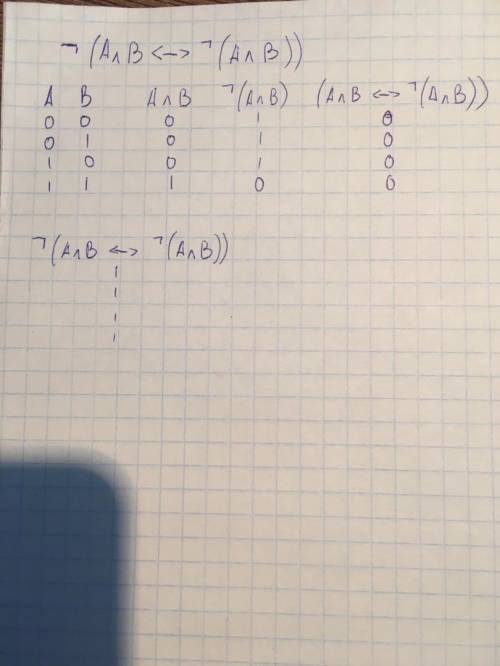 ¬(A∧B <-> ¬(A∧B))
A B A∧B ¬(A∧B) (A∧B <-> ¬(A∧B))
0 0 0 1 0
0 1 0 1 0
1 0 0 1 0
1 1 1 0 0
¬(A∧B <-> ¬(A∧B))
1
1
1
1